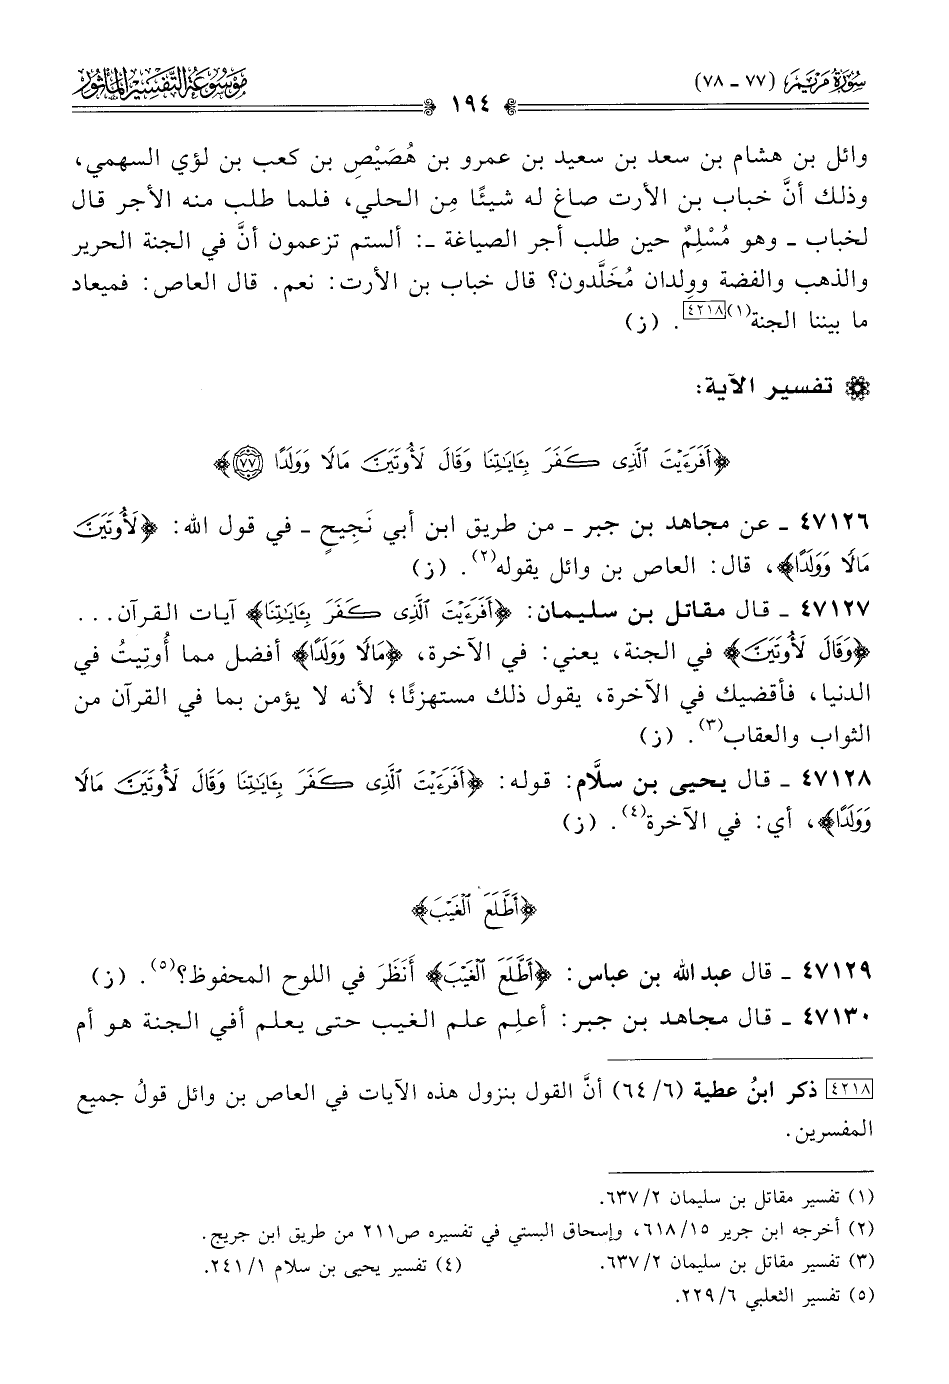 سُورَةُ مَرْيَم (٧٧ - ٧٨)
١٩٤
مَوْسُوعَة التَّفْسِيرُ المَأْثُور
وائل بن هشام بن سعد بن سعيد بن عمرو بن هُصَيْصِ بن كعب بن لؤي السهمي،
وذلك أنَّ خباب بن الأرت صاغ له شيئًا مِن الحلي، فلما طلب منه الأجر قال
لخباب - وهو مُسْلِمٌ حين طلب أجر الصياغة -: ألستم تزعمون أنَّ في الجنة الحرير
والذهب والفضة ووِلدان مُخَلَّدون؟ قال خباب بن الأرت: نعم. قال العاص: فميعاد
ما بيننا الجنة(١)[٤٢١٨]. (ز)
تفسير الآية:
﴿أَفَرَءَيْتَ ٱلَّذِى كَفَرَ بِـَٔايَـٰتِنَا وَقَالَ لَأُوتَيَنَّ مَالًا وَوَلَدًا ٧٧﴾
٤٧١٢٦ - عن مجاهد بن جبر - من طريق ابن أبي نَجِيحٍ - في قول الله: ﴿لَأُوتَيَنَّ
مَالًا وَوَلَدًا﴾، قال: العاص بن وائل يقوله(٢). (ز)
٤٧١٢٧ - قال مقاتل بن سليمان: ﴿أَفَرَءَيْتَ ٱلَّذِى كَفَرَ بِـَٔايَـٰتِنَا﴾ آيات القرآن...
﴿وَقَالَ لَأُوتَيَنَّ﴾ في الجنة، يعني: في الآخرة، ﴿مَالًا وَوَلَدًا﴾ أفضل مما أُوتِيتُ في
الدنيا، فأقضيك في الآخرة، يقول ذلك مستهزئًا؛ لأنه لا يؤمن بما في القرآن من
الثواب والعقاب(٣). (ز)
٤٧١٢٨ - قال يحيى بن سلَّام: قوله: ﴿أَفَرَءَيْتَ ٱلَّذِى كَفَرَ بِـَٔايَـٰتِنَا وَقَالَ لَأُوتَيَنَّ مَالًا
وَوَلَدًا﴾، أي: في الآخرة(٤). (ز)
﴿أَطَّلَعَ ٱلْغَيْبَ﴾
٤٧١٢٩ - قال عبد الله بن عباس: ﴿أَطَّلَعَ ٱلْغَيْبَ﴾ أَنَظَرَ في اللوح المحفوظ؟(٥). (ز)
٤٧١٣٠ - قال مجاهد بن جبر: أعلِم علم الغيب حتى يعلم أفي الجنة هو أم
[٤٢١٨] ذكر ابنُ عطية (٦/ ٦٤) أنَّ القول بنزول هذه الآيات في العاص بن وائل قولُ جميع
المفسرين.
(١) تفسير مقاتل بن سليمان ٢/ ٦٣٧.
(٢) أخرجه ابن جرير ١٥/ ٦١٨، وإسحاق البستي في تفسيره ص٢١١ من طريق ابن جريج.
(٣) تفسير مقاتل بن سليمان ٢/ ٦٣٧. (٤) تفسير يحيى بن سلام ١/ ٢٤١.
(٥) تفسير الثعلبي ٦/ ٢٢٩.